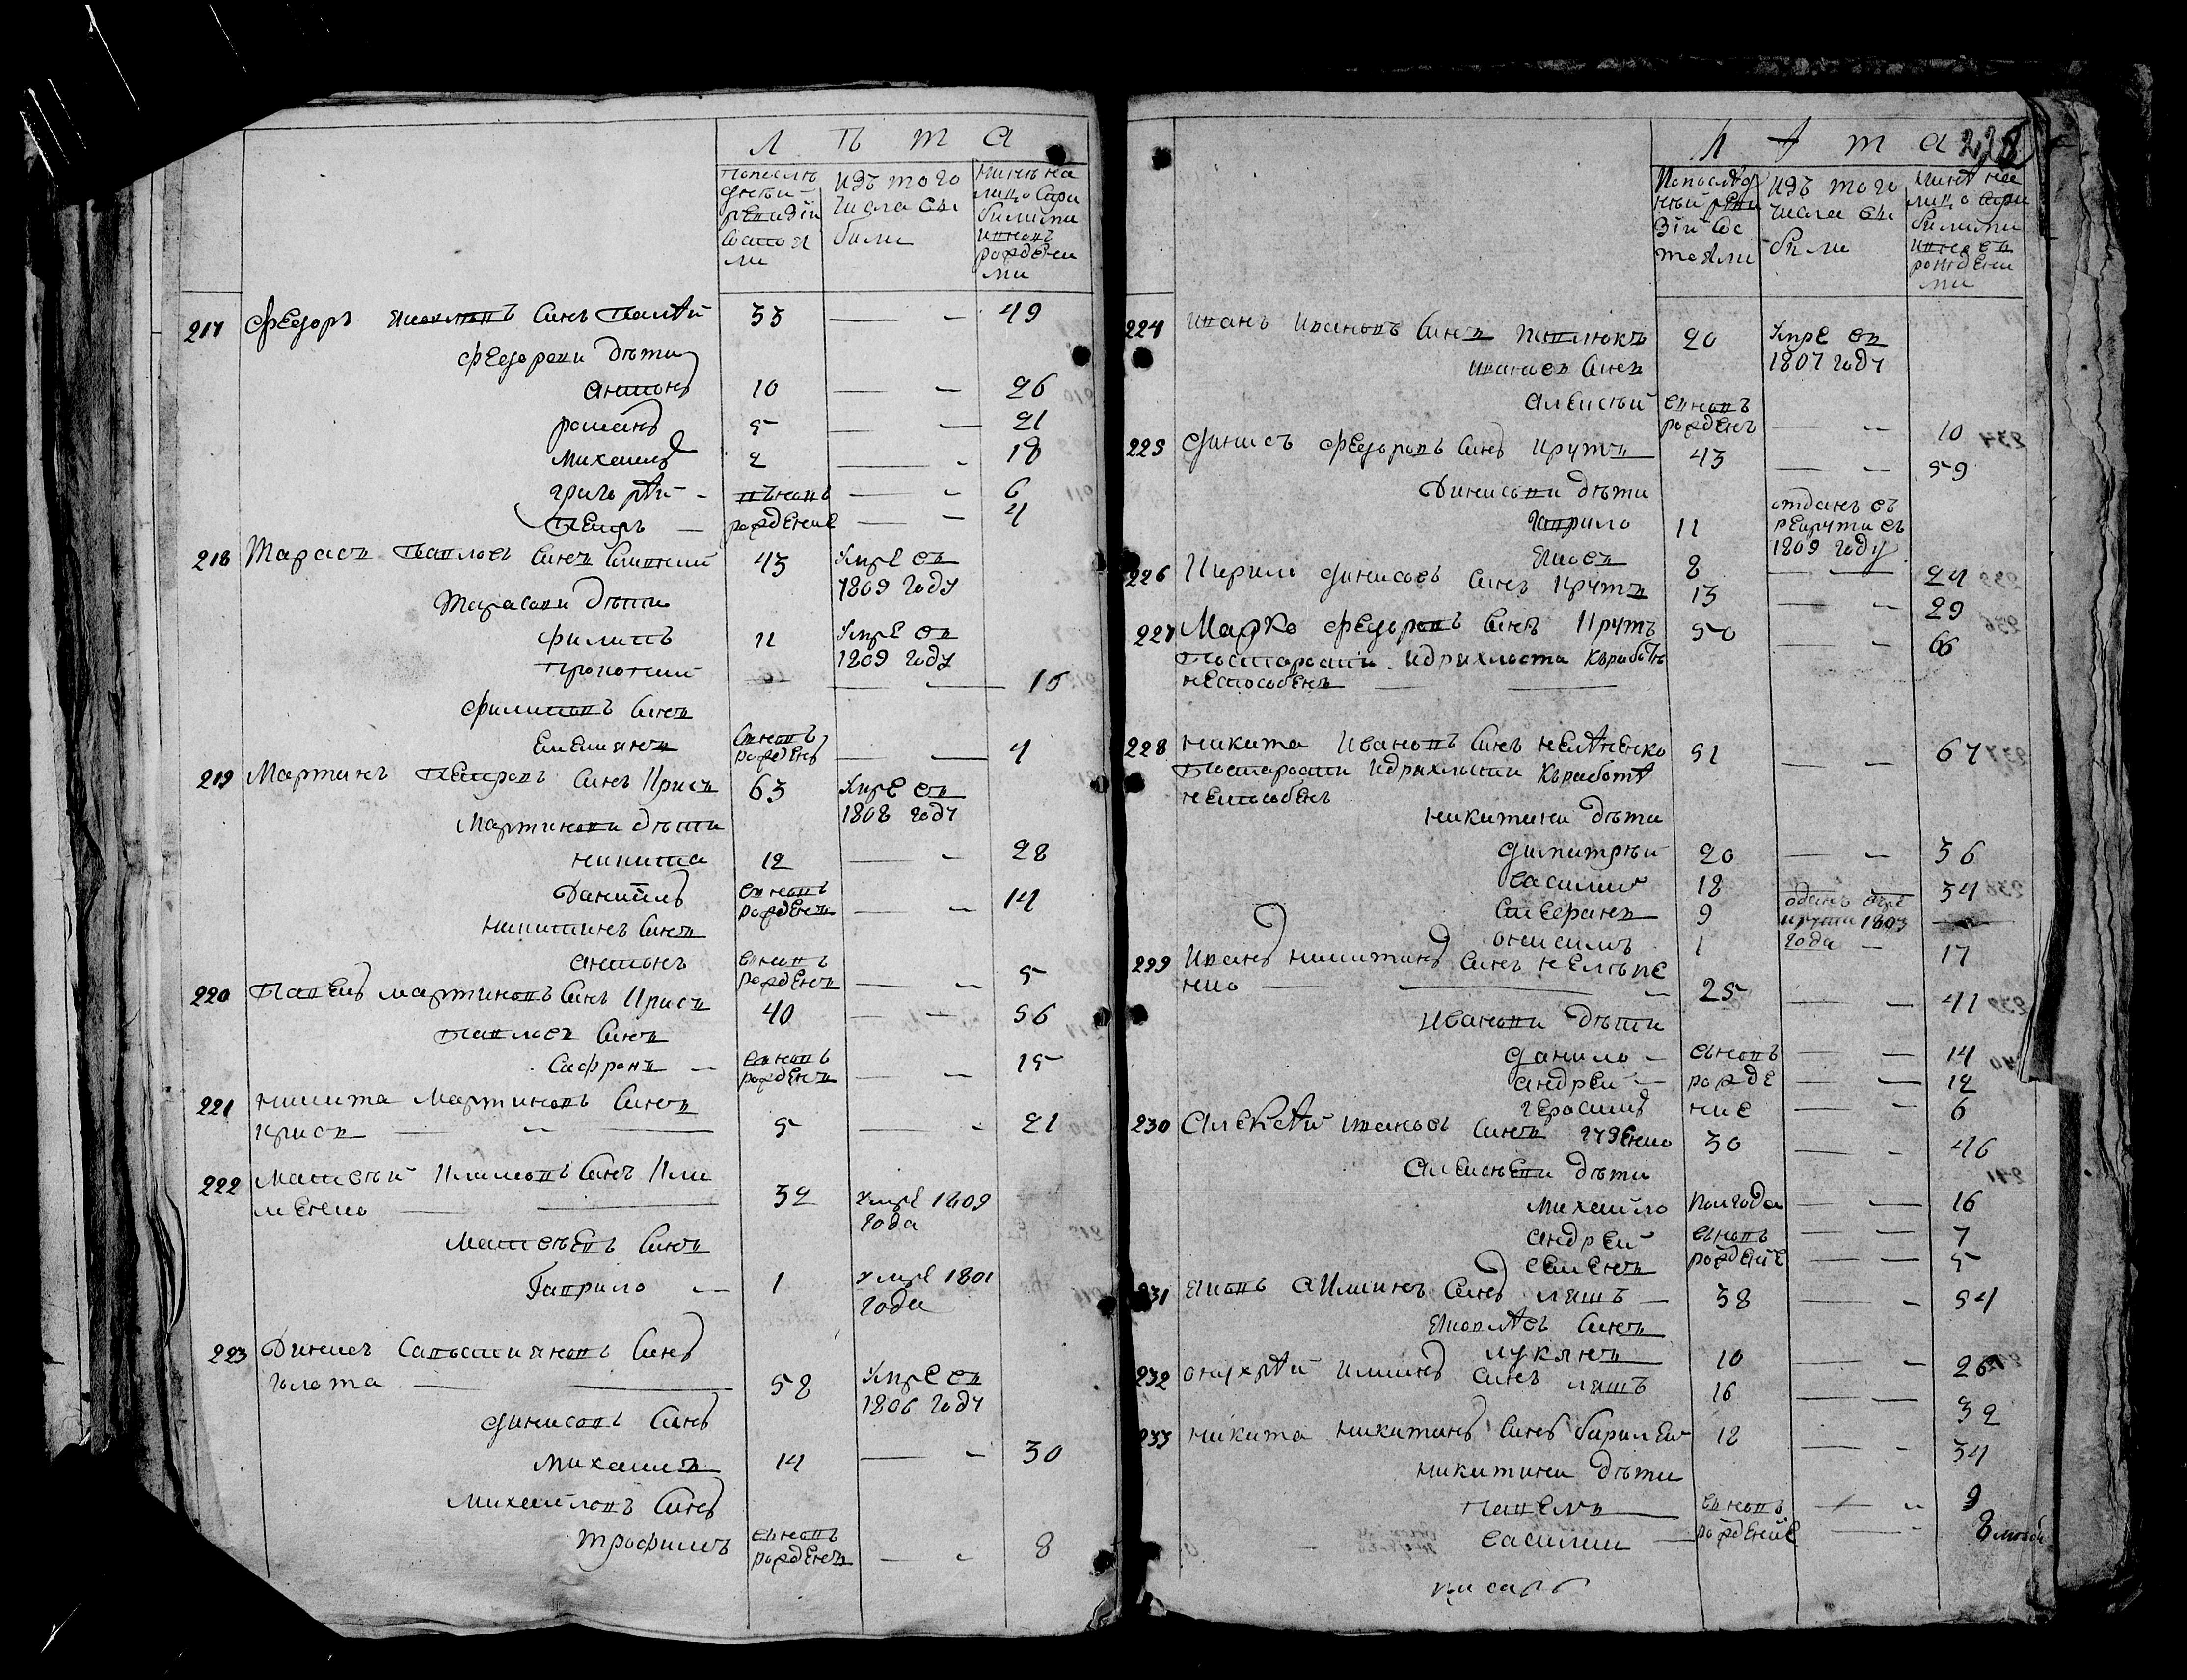 Л Ѣ т а
попослѣ
днѣй
ревизіи
состоя
ли
изъ того
числа вы
были
нинѣ на
лицо сари
билими
и вновь
рожденни
ми
217 Федоръ Яковлевъ синъ Палѣй 33 — 49
Федорови дѣти
Антонъ 10 — 26
романъ 5 — 21
Михаилъ 2 — 18
григорѣй вновь — 6
Петръ — рождение — 4
218 Тарасъ Павловъ синъ 43 умре въ
1809 году
Тарасови дѣти
Филипъ 11 умре въ
1809 году
Прокопий — 15
Филиповъ синъ
Емелянъ вновь
рожденъ — 4
219 Мартинъ Петровъ синъ Крисъ 63 умре въ
1808 году
Мартинови дѣти
никита 12 — 28
Даниилъ вновь
рожденъ — 14
никитинъ синъ
Антонъ вновь
рожденъ — 5
220 Павелъ Мартиновъ синъ Крисъ 40 — 56
Павловъ синъ
Сафронъ — вновь
рожденъ — 15
221 никита Мартиновъ синъ
крисъ — 5 — 21
222 Матвѣй Климовъ синъ Кли
менко — 32 умре 1809
года
Матвѣевъ синъ
Гаврило — 1 умре 1801
года
223 Динисъ Савостияновъ синъ
голота — 58 умре въ
1806 году
Динисовъ синъ
Михаилъ 14 — 30
Михайловъ синъ
Трофимъ вновь
рожденъ — 8
Л ѣ т а 228
Попослѣд
нѣй реви
зіи сос
тояли
изъ того
числа вы
были
нинѣ на
лицо сари
билими
и вновь
рожденни
ми
224 Иванъ Ивановъ синъ Павлюкъ 20 умре въ
1807 году
Ивановъ синъ
Алексѣй вновь
рожденъ — 10
225 Динисъ Федоровъ синъ Крутъ 43 — 59
Динисови дѣти
гаврило 11 отданъ въ
рекрути въ
1809 году
Яковъ 8 — 24
226 Кирило Динисовъ синъ Крутъ 13 — 29
227 Марко Федоровъ синъ Крутъ 50 — 66
Постарости идряхлости къработѣ
неспособенъ —
228 никита Ивановъ синъ нелѣпенко 51 — 67
Постарости идряхлости къработѣ
неспособенъ
никитини дѣти
Димитрѣй 20 — 36
василий 18 — 34
Аверянъ 9
онисимъ 1 года — 17
229 Иванъ никитинъ синъ нелѣпе
нко — 25 — 41
Иванови дѣти
данило — вновь — 14
андрей — рожде — 12
герасимъ ние — 6
230 Алексѣй Ивановъ синъ 30 — 46
Алексѣеви дѣти
Михайло полгода — 16
андрей вновь — 7
семенъ рождение — 5
231 Яковъ Илминъ синъ ляшъ — 38 — 54
Яковлевъ синъ
лукянъ 10 — 26
232 онуфрѣй илминъ синъ ляшъ 16 — 32
233 никита никитинъ синъ 18 — 34
никитини дѣти
Павелъ вновь — 9
василий — рождение — 8
писарь